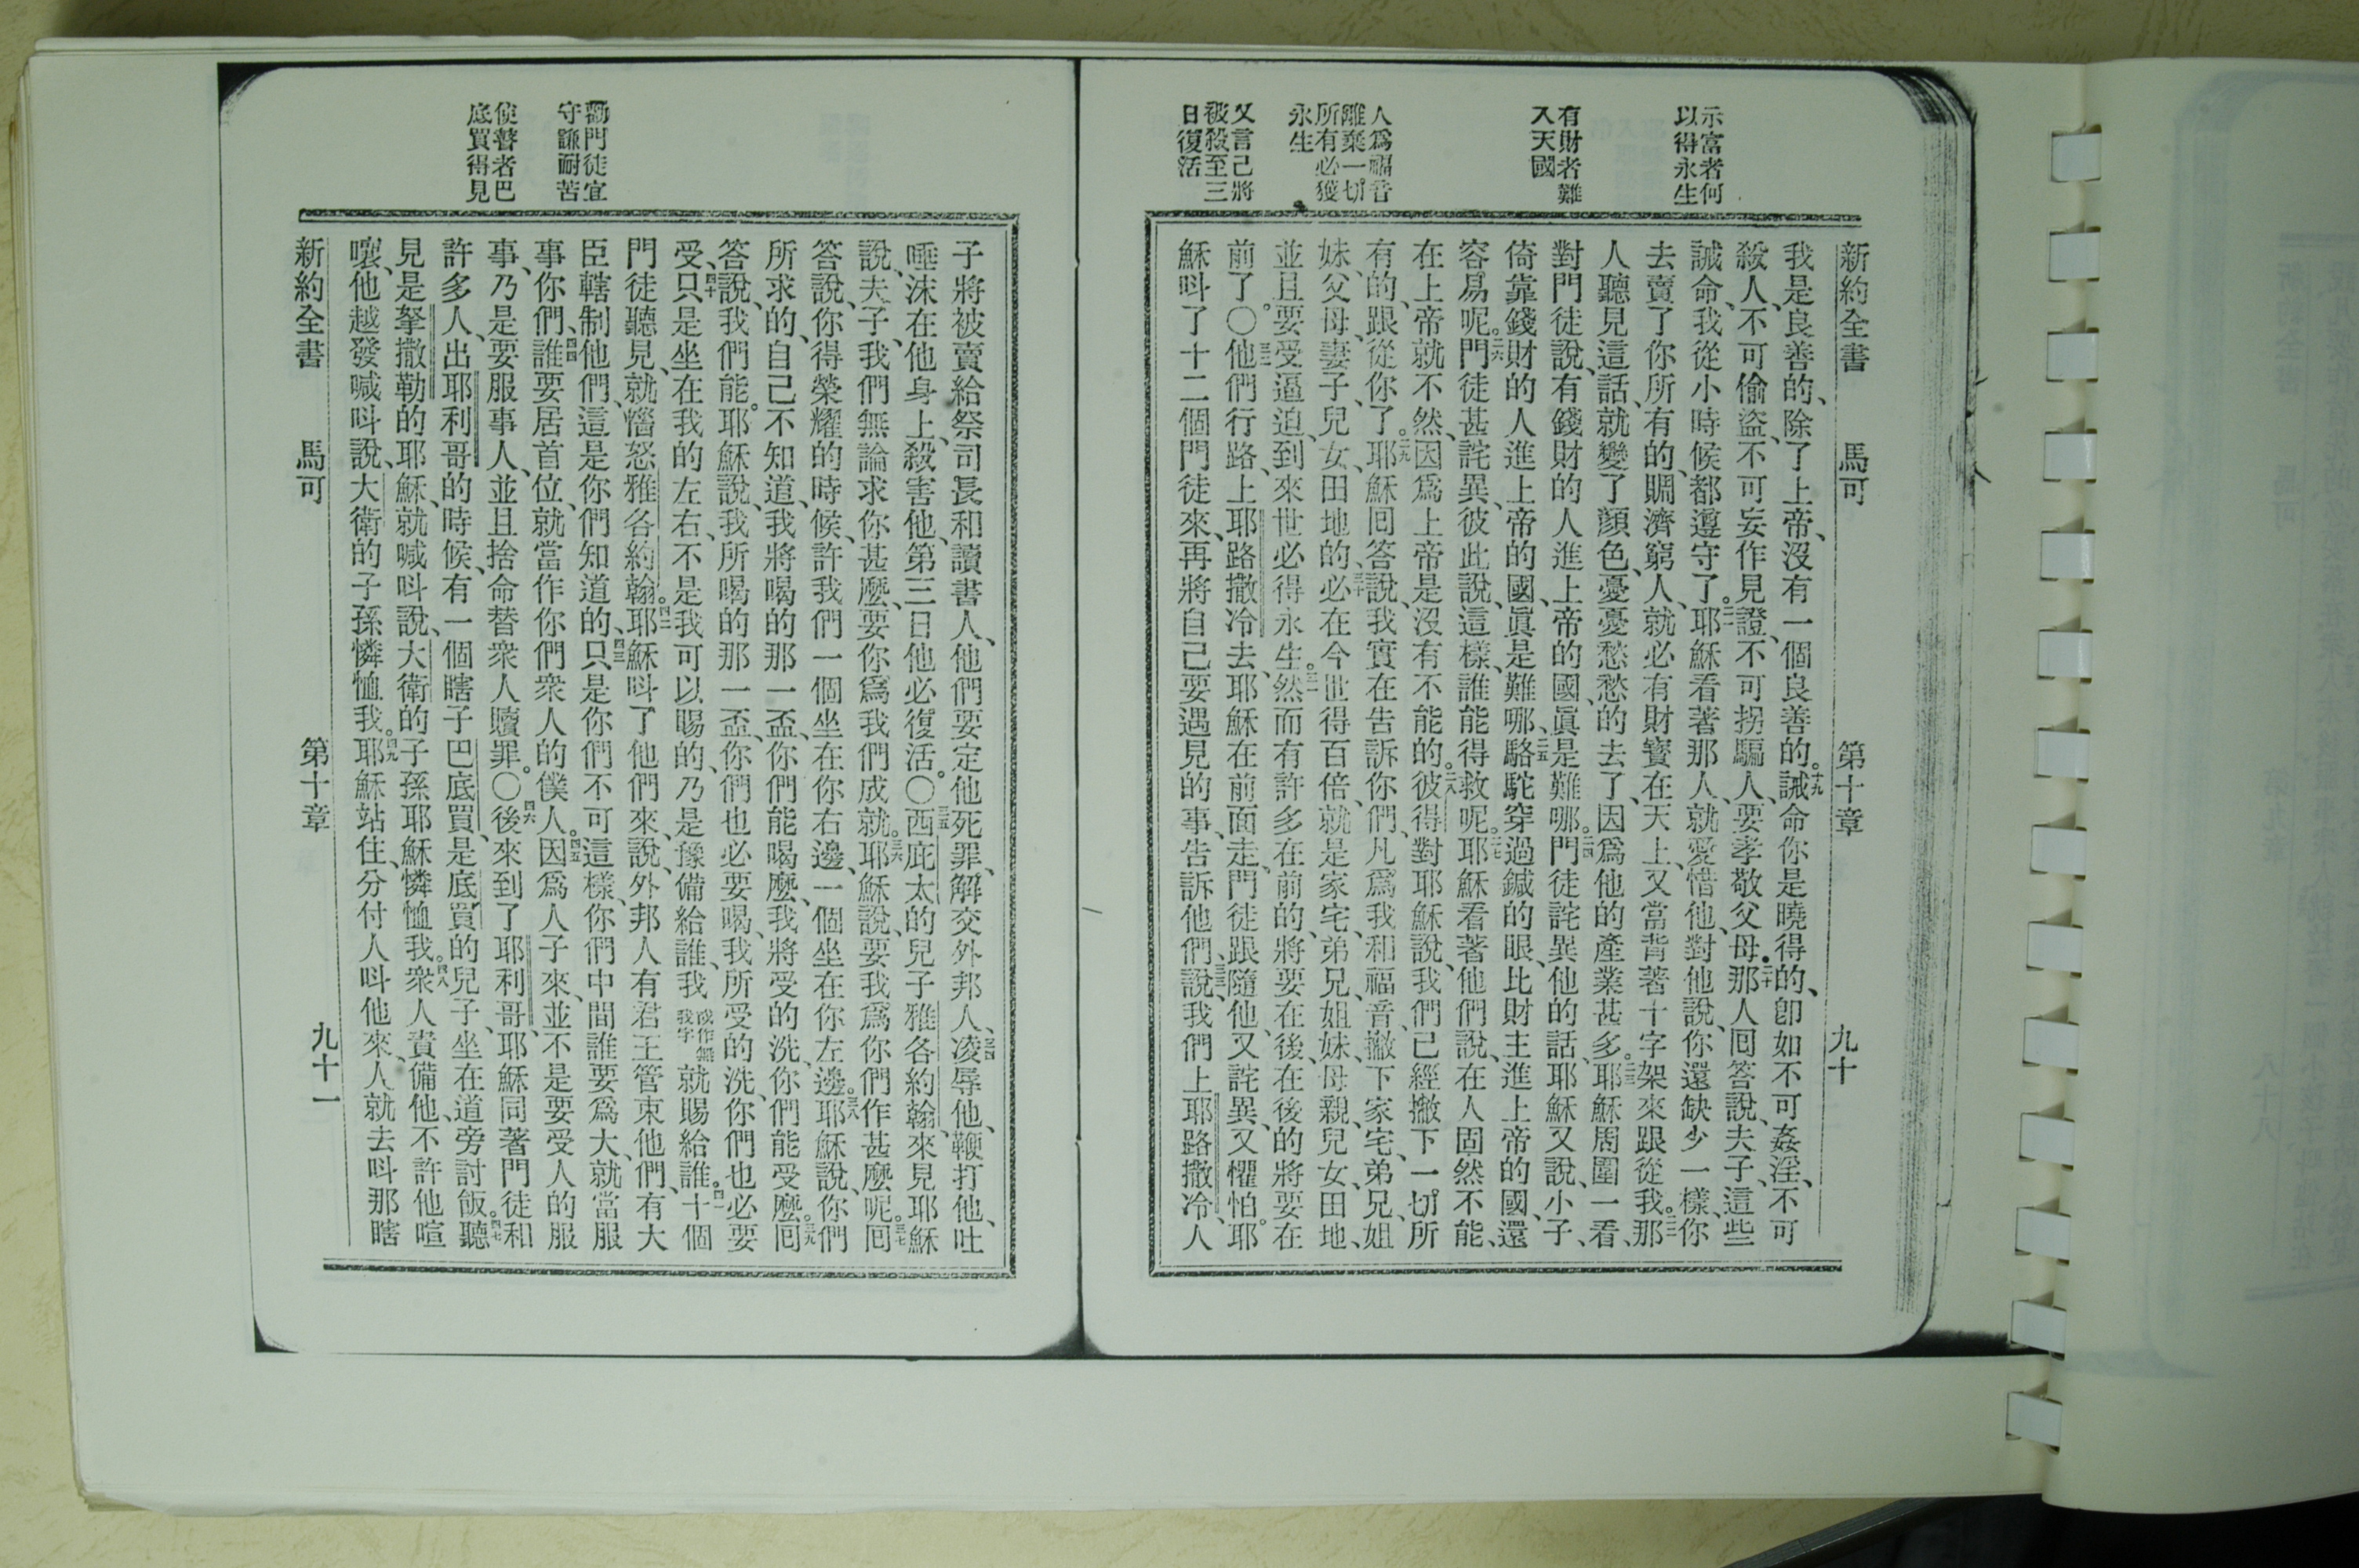 新約全書　馬可　第十章　九十
示富者何
以得永生
有財者難
入天國
人爲福音
離棄一切
所有必獲
永生
又言己將
被殺至三
日復活
我是良善的、除了上帝、沒有一個良善的。十九誡命你是曉得的、卽如不可姦淫、不可
殺人、不可偷盜、不可妄作見證、不可拐騙人、要孝敬父母。二十那人囘答說、夫子、這些
誡命、我從小時候都遵守了。二一耶穌看著那人、就愛惜他、對他說、你還缺少一樣、你
去賣了你所有的、賙濟窮人、就必有財寶在天上、又當背著十字架來跟從我。二二那
人聽見這話、就變了顏色、憂憂愁愁的去了、因爲他的產業甚多。二三耶穌周圍一看、
對門徒說、有錢財的人進上帝的國、眞是難哪。二四門徒詫異他的話、耶穌又說、小子、
倚靠錢財的人進上帝的國、眞是難哪、二五駱駝穿過鍼的眼、比財主進上帝的國、還
容易呢。二六門徒甚詫異、彼此說、這樣、誰能得救呢。二七耶穌看著他們說、在人固然不能、
在上帝就不然、因爲上帝是沒有不能的。二八彼得對耶穌說、我們已經撇下一切所
有的、跟從你了。二九耶穌囘答說、我實在告訴你們、凡爲我和福音、撇下家宅、弟兄、姐
妹、父母、妻子、兒女、田地的、三十必在今世得百倍、就是家宅、弟兄、姐妹、母親、兒女、田地、
並且要受逼迫、到來世必得永生。三一然而有許多在前的、將要在後、在後的將要在
前了。〇三二他們行路、上耶路撒冷去、耶穌在前面走、門徒跟隨他、又詫異、又懼怕。耶
穌呌了十二個門徒來、再將自己要遇見的事、告訴他們、三三說、我們上耶路撒冷、人
勸門徒宜
守謙耐苦
使瞽者巴
底買得見
子將被賣給祭司長和讀書人、他們要定他死罪、解交外邦人、三四凌辱他、鞭打他、吐
唾沫在他身上、殺害他、第三日他必復活。〇三五西庇太的兒子雅各約翰、來見耶穌
說、夫子、我們無論求你甚麼、要你爲我們成就。三六耶穌說、要我爲你們作甚麼呢。三七囘
答說、你得榮耀的時候、許我們一個坐在你右邊、一個坐在你左邊。三八耶穌說、你們
所求的、自己不知道、我將喝的那一盃、你們能喝麼、我將受的洗、你們能受麼。三九囘
答說、我們能。耶穌說、我所喝的那一盃、你們也必要喝、我所受的洗、你們也必要
受、四十只是坐在我的左右、不是我可以賜的、乃是豫備給誰、我或作無我字就賜給誰。四一十個
門徒聽見、就惱怒雅各約翰。四二耶穌呌了他們來、說、外邦人有君王管束他們、有大
臣轄制他們、這是你們知道的、四三只是你們不可這樣、你們中間誰要爲大、就當服
事你們、四四誰要居首位、就當作你們衆人的僕人。四五因爲人子來、並不是要受人的服
事、乃是要服事人、並且捨命替衆人贖罪。〇四六後來到了耶利哥、耶穌同著門徒和
許多人、出耶利哥的時候、有一個瞎子巴底買、是底買的兒子、坐在道旁討飯。四七聽
見是拏撒勒的耶穌、就喊呌說、大衛的子孫耶穌憐恤我。四八衆人責備他、不許他喧
嚷、他越發喊呌說、大衛的子孫憐恤我。四九耶穌站住、分付人呌他來、人就去呌那瞎
新約全書　馬可　第十章　九十一